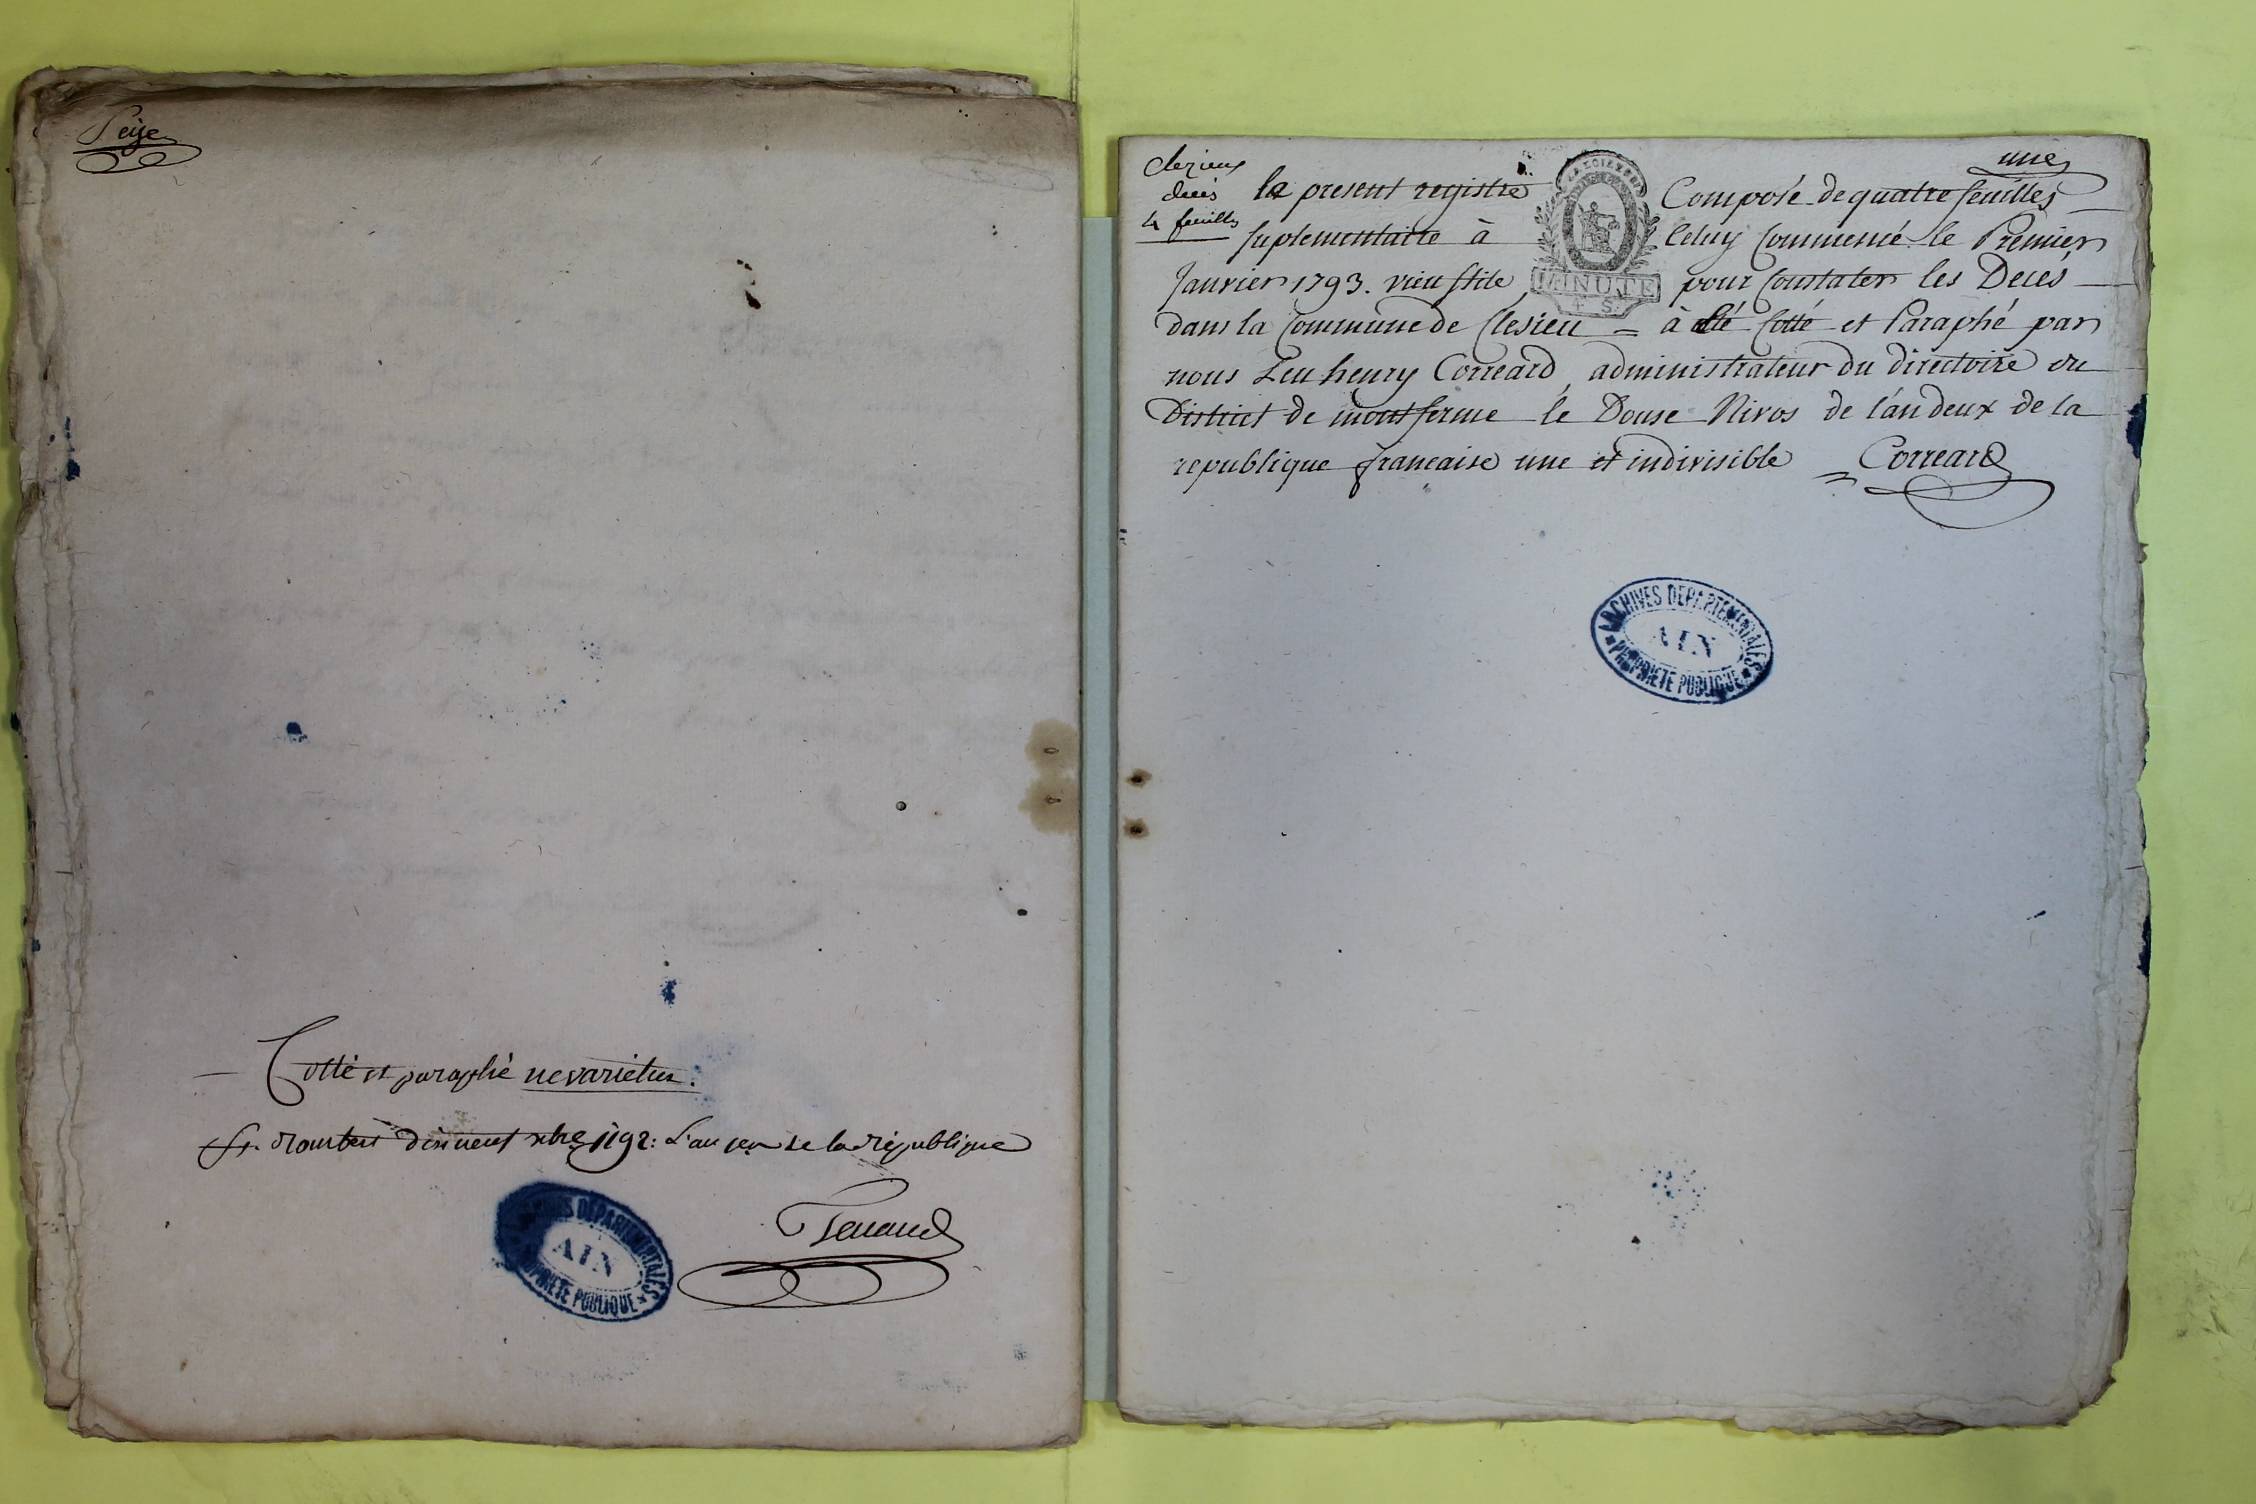 Seize
Cotté et paraphé ne varietur.
St. Rambert dixneuf xbre 1792: L'an 1er de la république
Tenand
ARCHIVES DEPARTEMENTALES
AIN
PROPRIETE PUBLIQUE
Clezieux
decés
4 feuilles
une
le present registre Composé de quatre feuilles
suplementaire à Celuy Commencé le Premier
Janvier 1793. vieu stile pour Constater les Deces
dans la Commune de Clesieu = à été Cotté et Paraphé par
nous Leu henry Correard administrateur du directoire du
District de montferme le Douse Nivos de l'an deux de la
republique francaise une et indivisible = Correard
MINUTE
ARCHIVES DEPARTEMENTALES
AIN
PROPRIETE PUBLIQUE